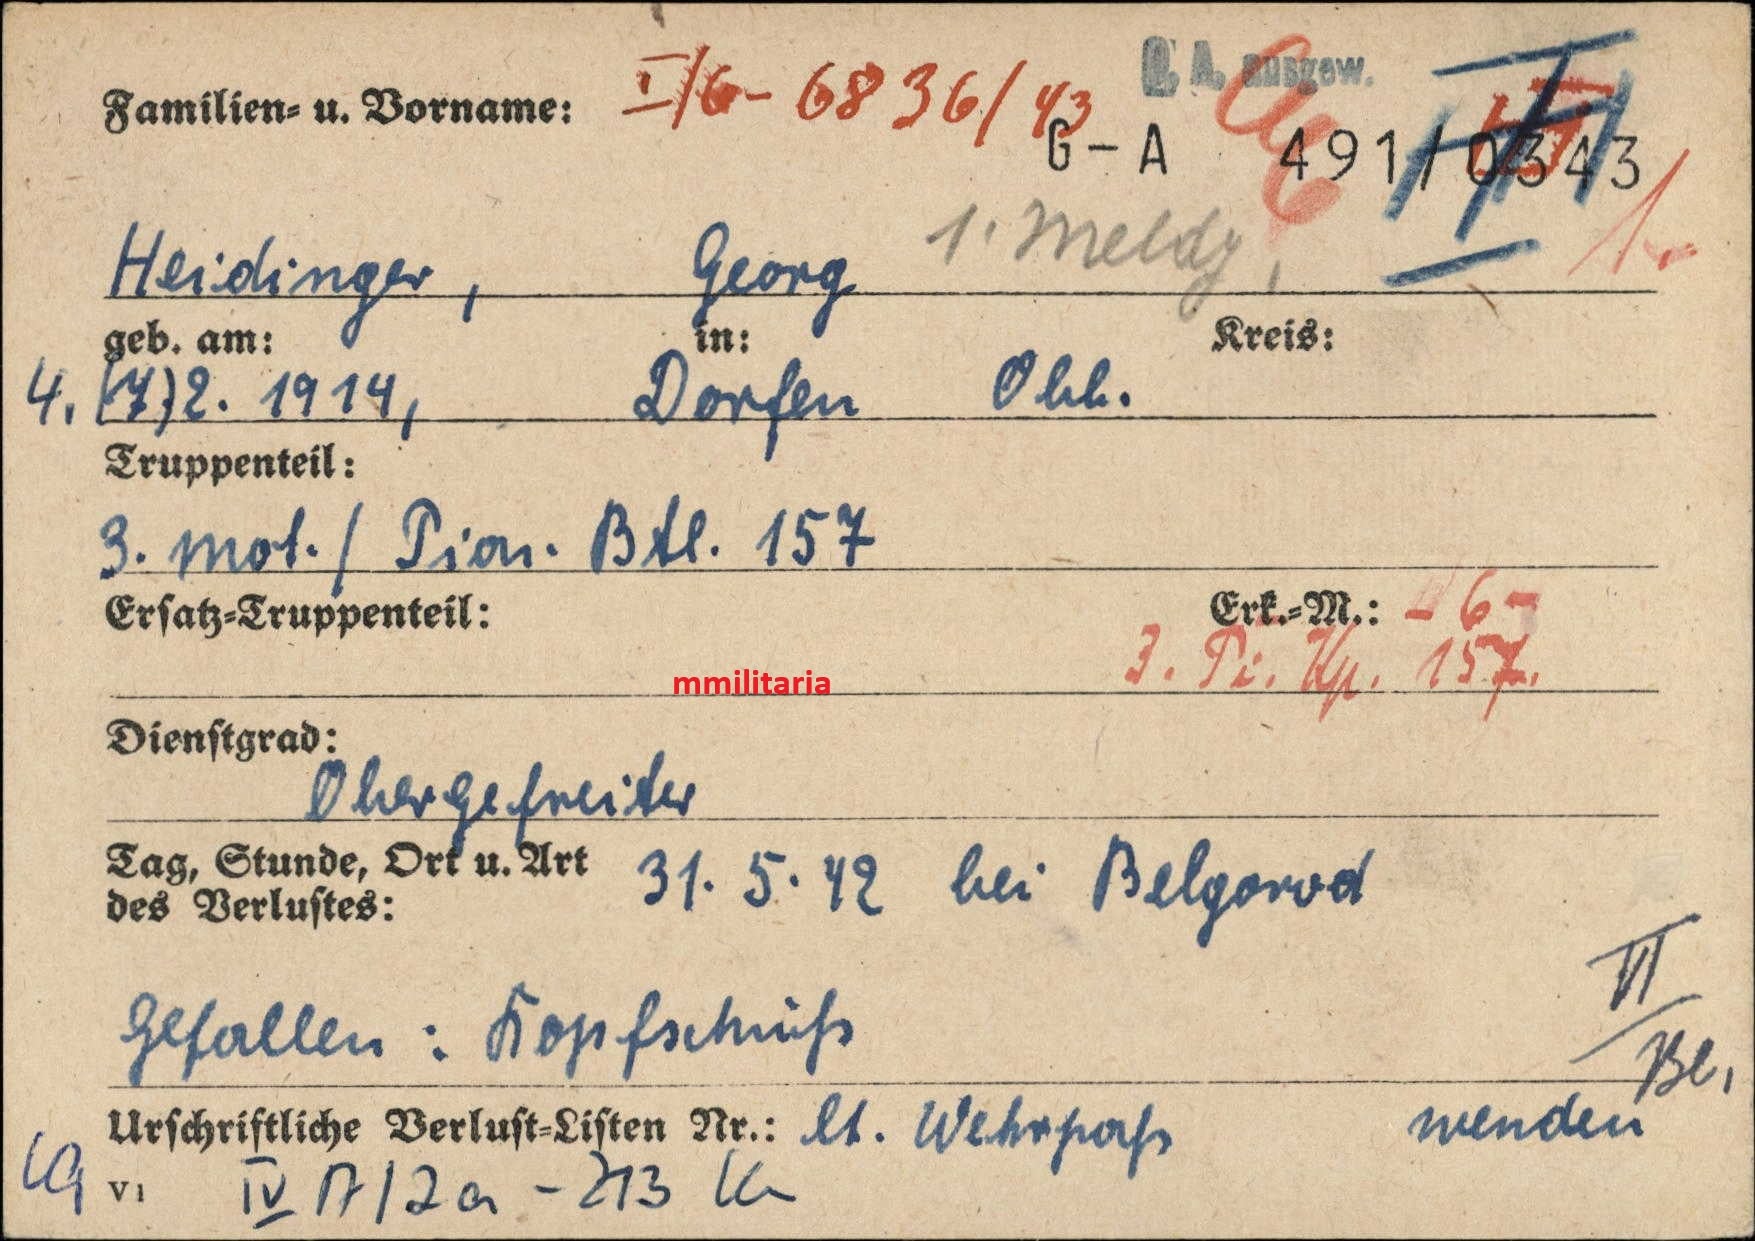 Familien- u. Vorname: I/6- 6836/43 G. A. ausgew.
G-A 491/0343
Heidinger, Georg 1. Meldg,
geb. am: in: Kreis:
4. (7)2. 1914, Dorfen Obb.
Truppenteil:
3. mot. / Pion. Btl. 157
Ersatz-Truppenteil: Erk.-M.: -6-
3. Pi. Kp. 157.
mmilitaria
Dienstgrad:
Obergefreiter
Tag, Stunde, Ort u. Art
des Verlustes: 31. 5. 42 bei Belgorod
VI
Gefallen : Kopfschuß
Bl,
Urschriftliche Verlust-Listen Nr.: lt. Wehrpaß wenden
V1 IV A/2a - 213